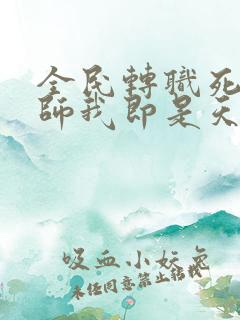 全民轉職死
師我即是天
吸血小妖兔
未任同意禁止轉載